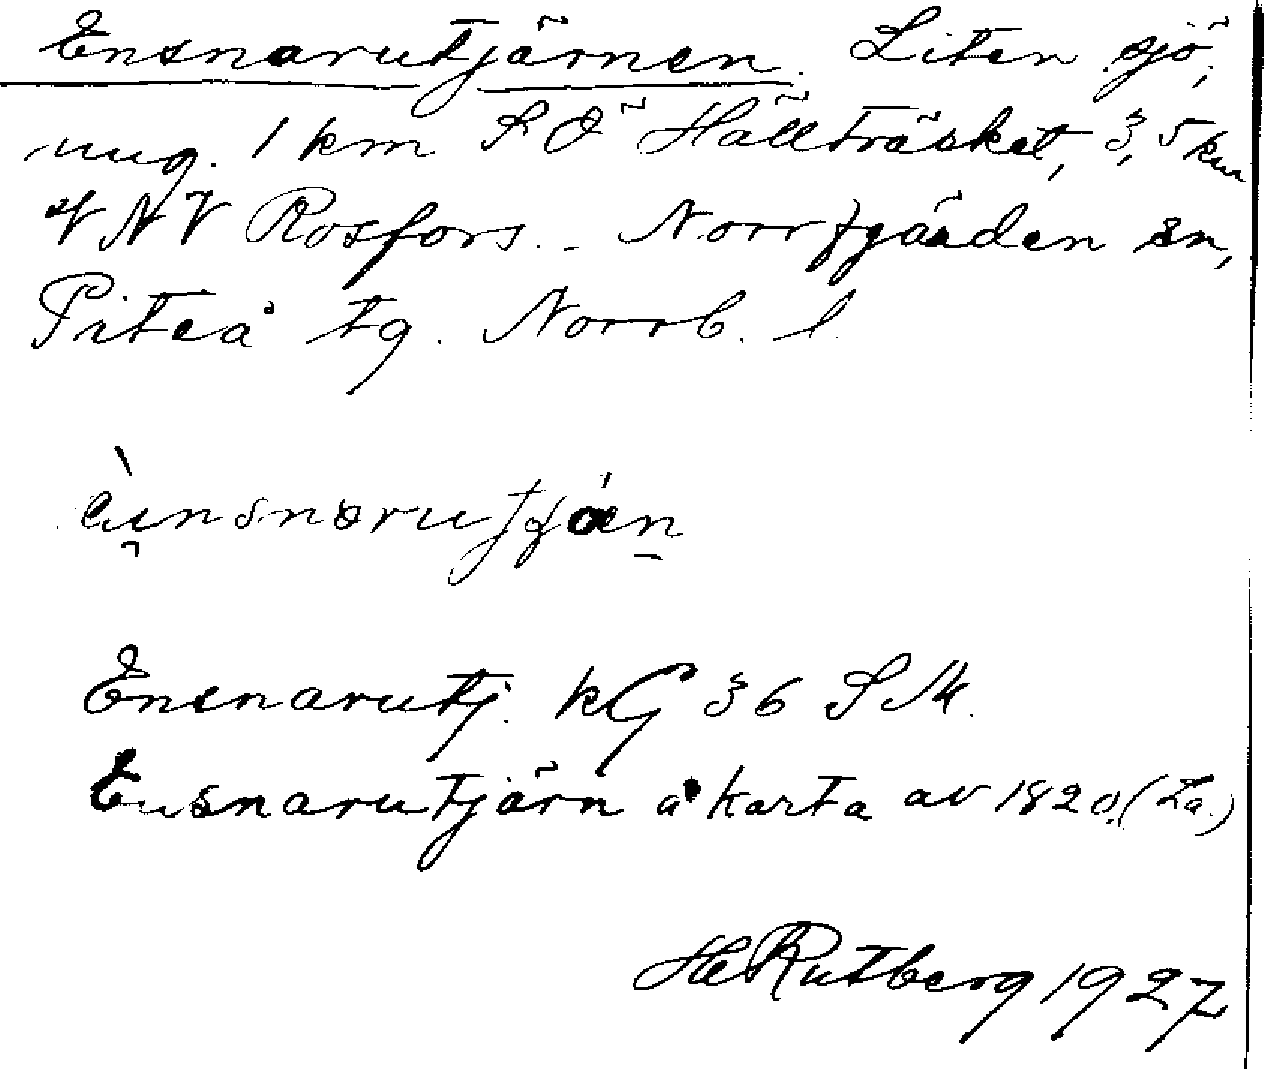 Ensnarutjärnen. Liten sjö,
ung. 1 km SÖ Hällträsket, 3,5 km
VNV Rosfors. - Norrfjärden sn,
Piteå tg. Norrb. l.
Ensnarutj. kG 36 SM.
Ensnarutjärn å karta av 1820. (La.)
HRutberg 1927